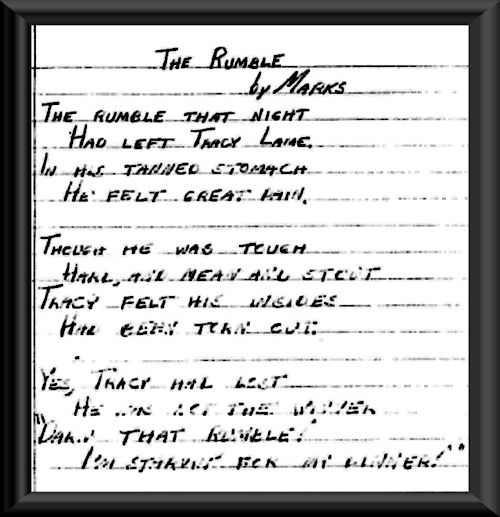 THE RUMBLE
by MARKS
THE RUMBLE THAT NIGHT
HAD LEFT TRACY LAME.
IN HIS TANNED STOMACH
HE FELT GREAT PAIN.
THOUGH HE WAS TOUGH
HARD, AND MEAN AND STOUT
TRACY FELT HIS INSIDES
HAD BEEN TORN OUT.
YES, TRACY HAD LOST
HE WAS NOT THE WINNER
"DARN THAT RUMBLE!
I'M STARVIN' FOR MY DINNER!"